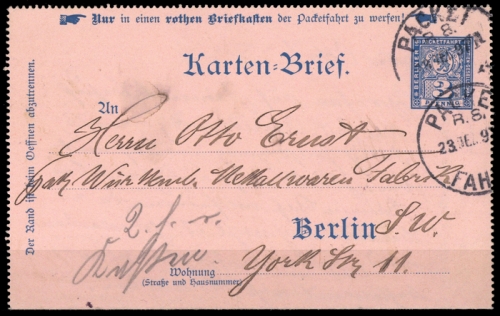 Nur in einen rothen Briefkasten der Packetfahrt zu werfen!
PACKET
R.S.
BERLINER PACKETFAHRT
3
PFENNIG
Karten=Brief.
PACKE
R.S.
23.DE. 9
FAH
Der Rand ist beim Oeffnen abzutrennen.
An
Herrn Otto Ernst
Württemb. Metallwaren Fabrik
Berlin S.W.
Wohnung York Str 11.
(Straße und Hausnummer)